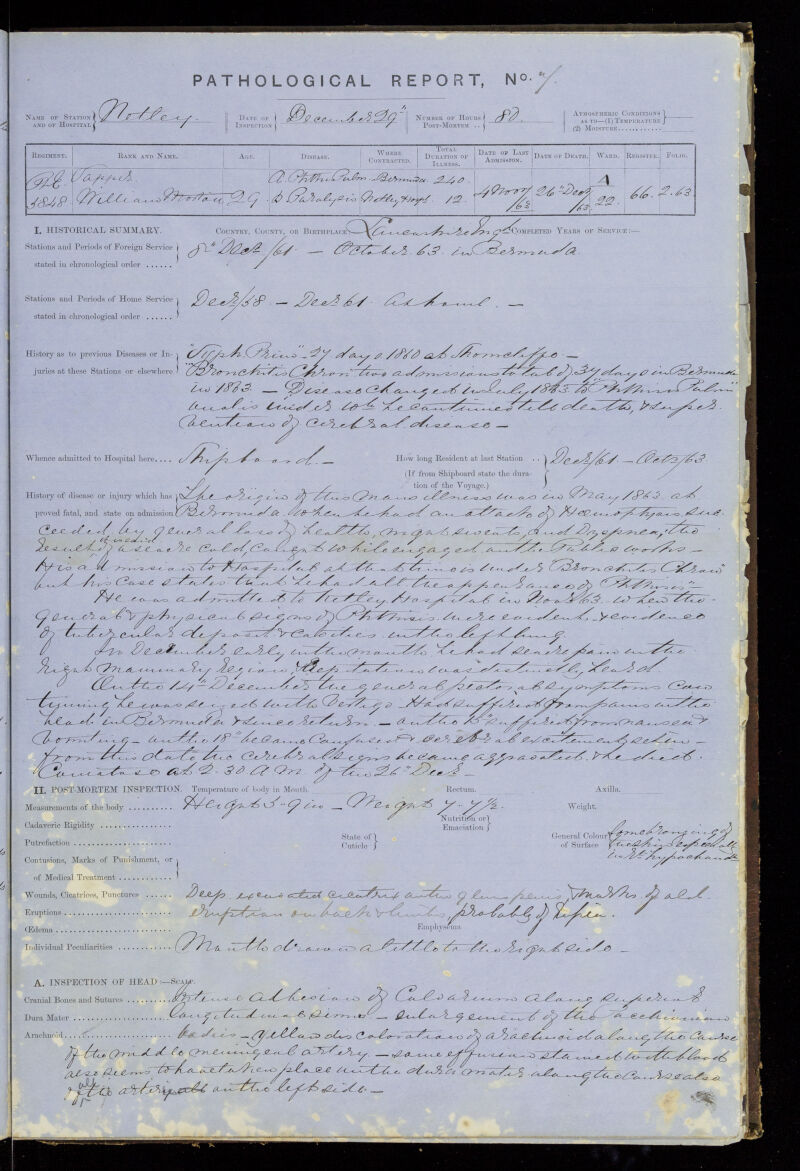 PATHOLOGICAL REPORT, No.
NAME OF STATION AND OF HOSPITAL Netley. DATE OF INSPECTION December 29th NUMBER OF HOURS POST-MORTEM .. 80. ATMOSPHERIC CONDITIONS AS TO—(1) TEMPERATURE (2) MOISTURE
REGIMENT. RANK AND NAME. AGE. DISEASE. WHERE CONTRACTED. TOTAL DURATION OF ILLNESS. DATE OF LAST ADMISSION. DATE OF DEATH. WARD. REGISTER. FOLIO.
R.E. Sapper A. Phth: Pulm. Bermuda 240. A
William Morton 29 b Paralysis Netley Hospl 12. 4 Novr/63 26th Decr/63 22 66. 2.63.
I. HISTORICAL SUMMARY. COUNTRY, COUNTY, OR BIRTHPLACE Lancashire Engd COMPLETED YEARS OF SERVICE:—
Stations and Periods of Foreign Service stated in chronological order ...... 8th Decr/61 — October 63 in Bermuda
Stations and Periods of Home Service stated in chronological order ...... Decr/58 — Decr 61 at home —
History as to previous Diseases or Injuries at these Stations or elsewhere "Syph Prim" 27 days 1860 at —
"Bronchitis Chron" two admissions total of 37 days in Bermuda
in 1863 — Disease changed in July 1863 to "Phthisis Pulm"
and is under wh he continued till death, & super
vention of cerebral disease —
Whence admitted to Hospital here.... Shipboard — How long Resident at last Station .. Decr/61 — Octr/63
(If from Shipboard state the duration of the Voyage.)
History of disease or injury which has proved fatal, and state on admission The origin of this mans illness was in May 1863 at
Bermuda when he had an attack of Haemoptysis suc
ceeded by general loss of health, night sweats, and Dyspnea, the
result of a severe cold, caught while engaged on the Public works —
His admission to Hospital at that time is under Bronchitis Chron
but his case states that he had all the appearance of Phthisis —
He was admitted to Netley Hospital in Novr 63 when the
general & physical signs of Phthisis were evident & evidence
of tubercular deposit & cavities in the left lung
In December early in the month he had severe pain in the
right mammary region, Crepitation was distinctly heard
On the 14th December the general pectoral symptoms con
tinuing he was seized with Vertigo. Had suffered from pains in the
head in Bermuda & since return — on the suffered from nausea &
vomiting — on the 18th became confused & cerebral excitement set in —
from this date the cerebral signs became aggravated & he died
Comatose at 2.30 A.M. of the 26th Decr —
II. POST-MORTEM INSPECTION. Temperature of body in Mouth Rectum. Axilla.
Measurements of the body .......... Height 5-9 in — Weight 7-7½. Weight.
Cadaveric Rigidity Nutrition or Emaciation
Putrefaction State of Cuticle General Colour of Surface Some bronzing of the skin especially in Rt hypochondr
Contusions, Marks of Punishment, or of Medical Treatment
Wounds, Cicatrices, Punctures ...... Deep excavated cicatrix on the glans penis, & marks of old
Eruptions eruption on back & limbs, probably of Rupia.
Œdema Emphysema
Individual Peculiarities ............ Mouth drawn a little to the right side —
A. INSPECTION OF HEAD:—SCALP.
Cranial Bones and Sutures .......... Intense adhesion of Calvarium along superior
Dura Mater longitudinal sinus — enlargement of the Pacchionian
Arachnoid bodies — Yellow discoloration of arachnoid along the course
of the middle meningeal artery — some effusion stained with blood
also seems to have taken place in the dura mater along the course also
of the arterial on the left side —